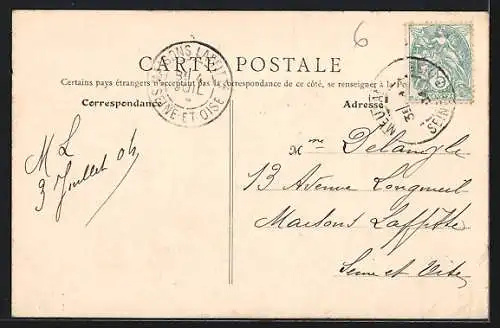 6
CARTE POSTALE
Certains pays étrangers n'acceptant pas la correspondance de ce côté, se renseigner à la
Correspondance
Adresse
MAISONS LAFFITTE
SEINE-ET-OISE
M L
3 Juillet 04
Mme Delangle
13 Avenue Longueil
Maisons Laffitte
Seine et Oise